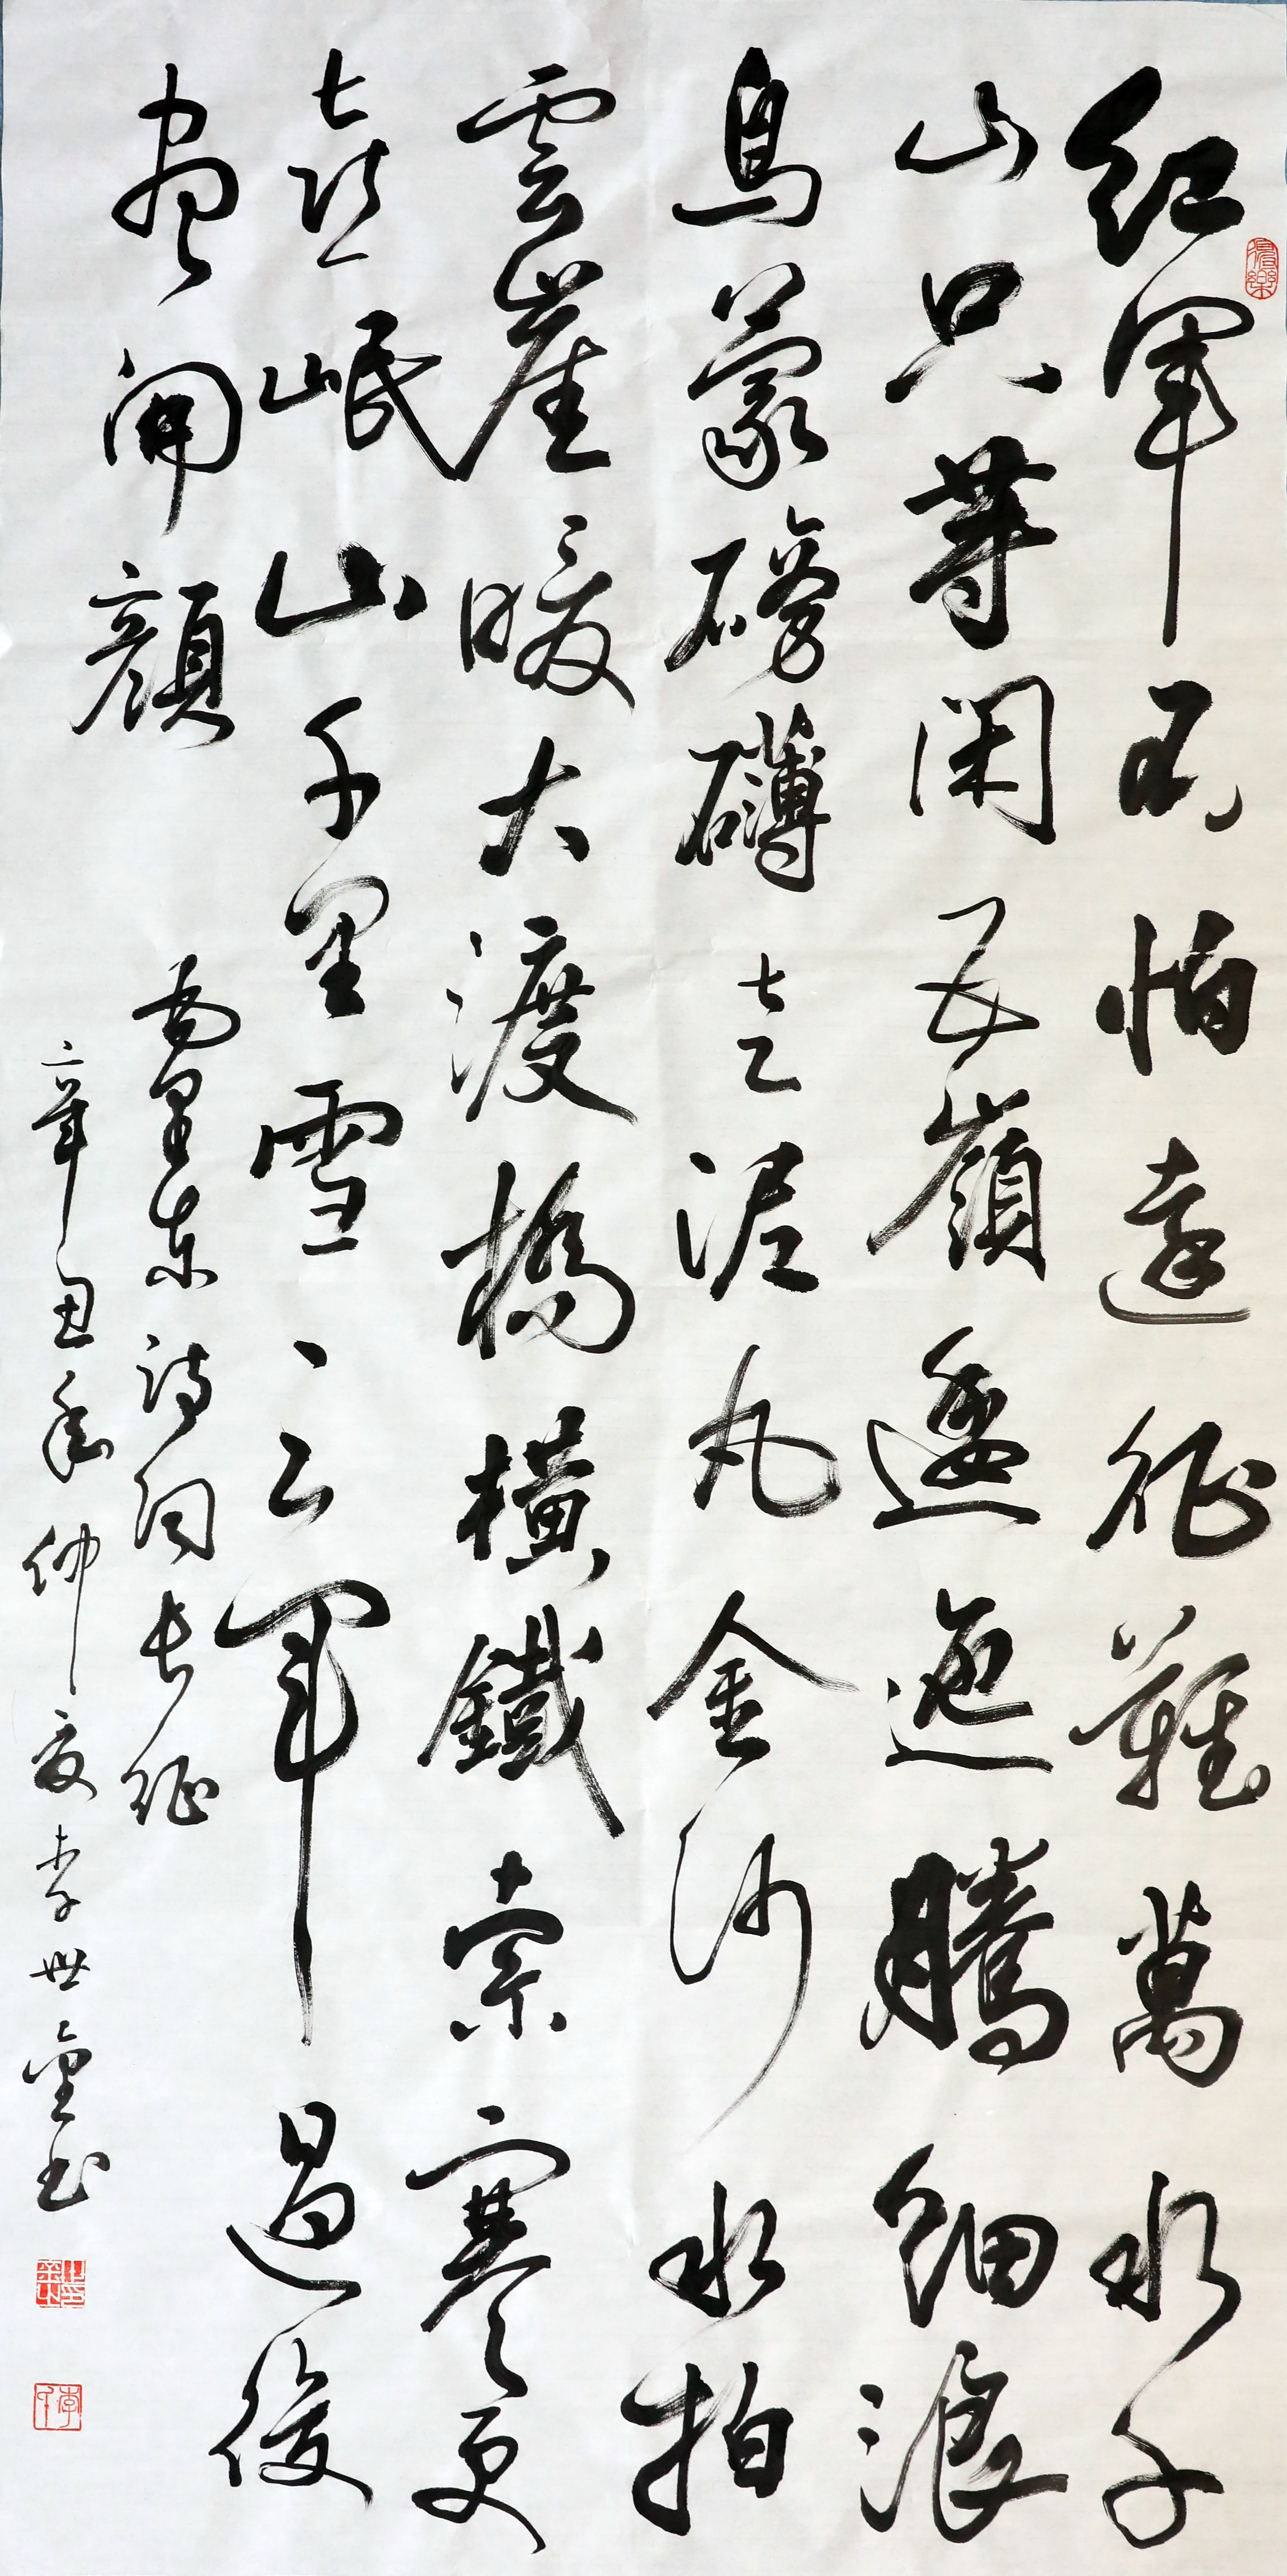 紅軍不怕遠征難萬水千
山只等閑五嶺逶迤騰細浪
烏蒙磅礴走泥丸金沙水拍
雲崖暖大渡橋橫鐵索寒更
喜岷山千里雪三軍過後
盡開顏
东詩詞長征
辛丑年仲夏李世书